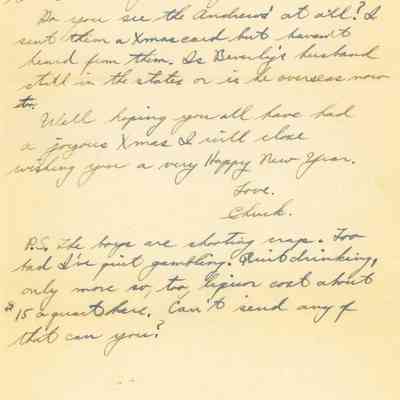 Do you see the Andrews' at all? I
sent them a Xmas card but haven't
heard from them. Is Beverly's husband
still in the states or is he overseas now
too.
Well hoping you all have had
a joyous Xmas I will close
wishing you a very Happy New Year.
Love.
Chuck.
P.S. The boys are shooting craps. Too
bad I've quit gambling. Quit drinking,
only more so, too, liquor cost about
$15 a quart here. Can't send any of
that can you?